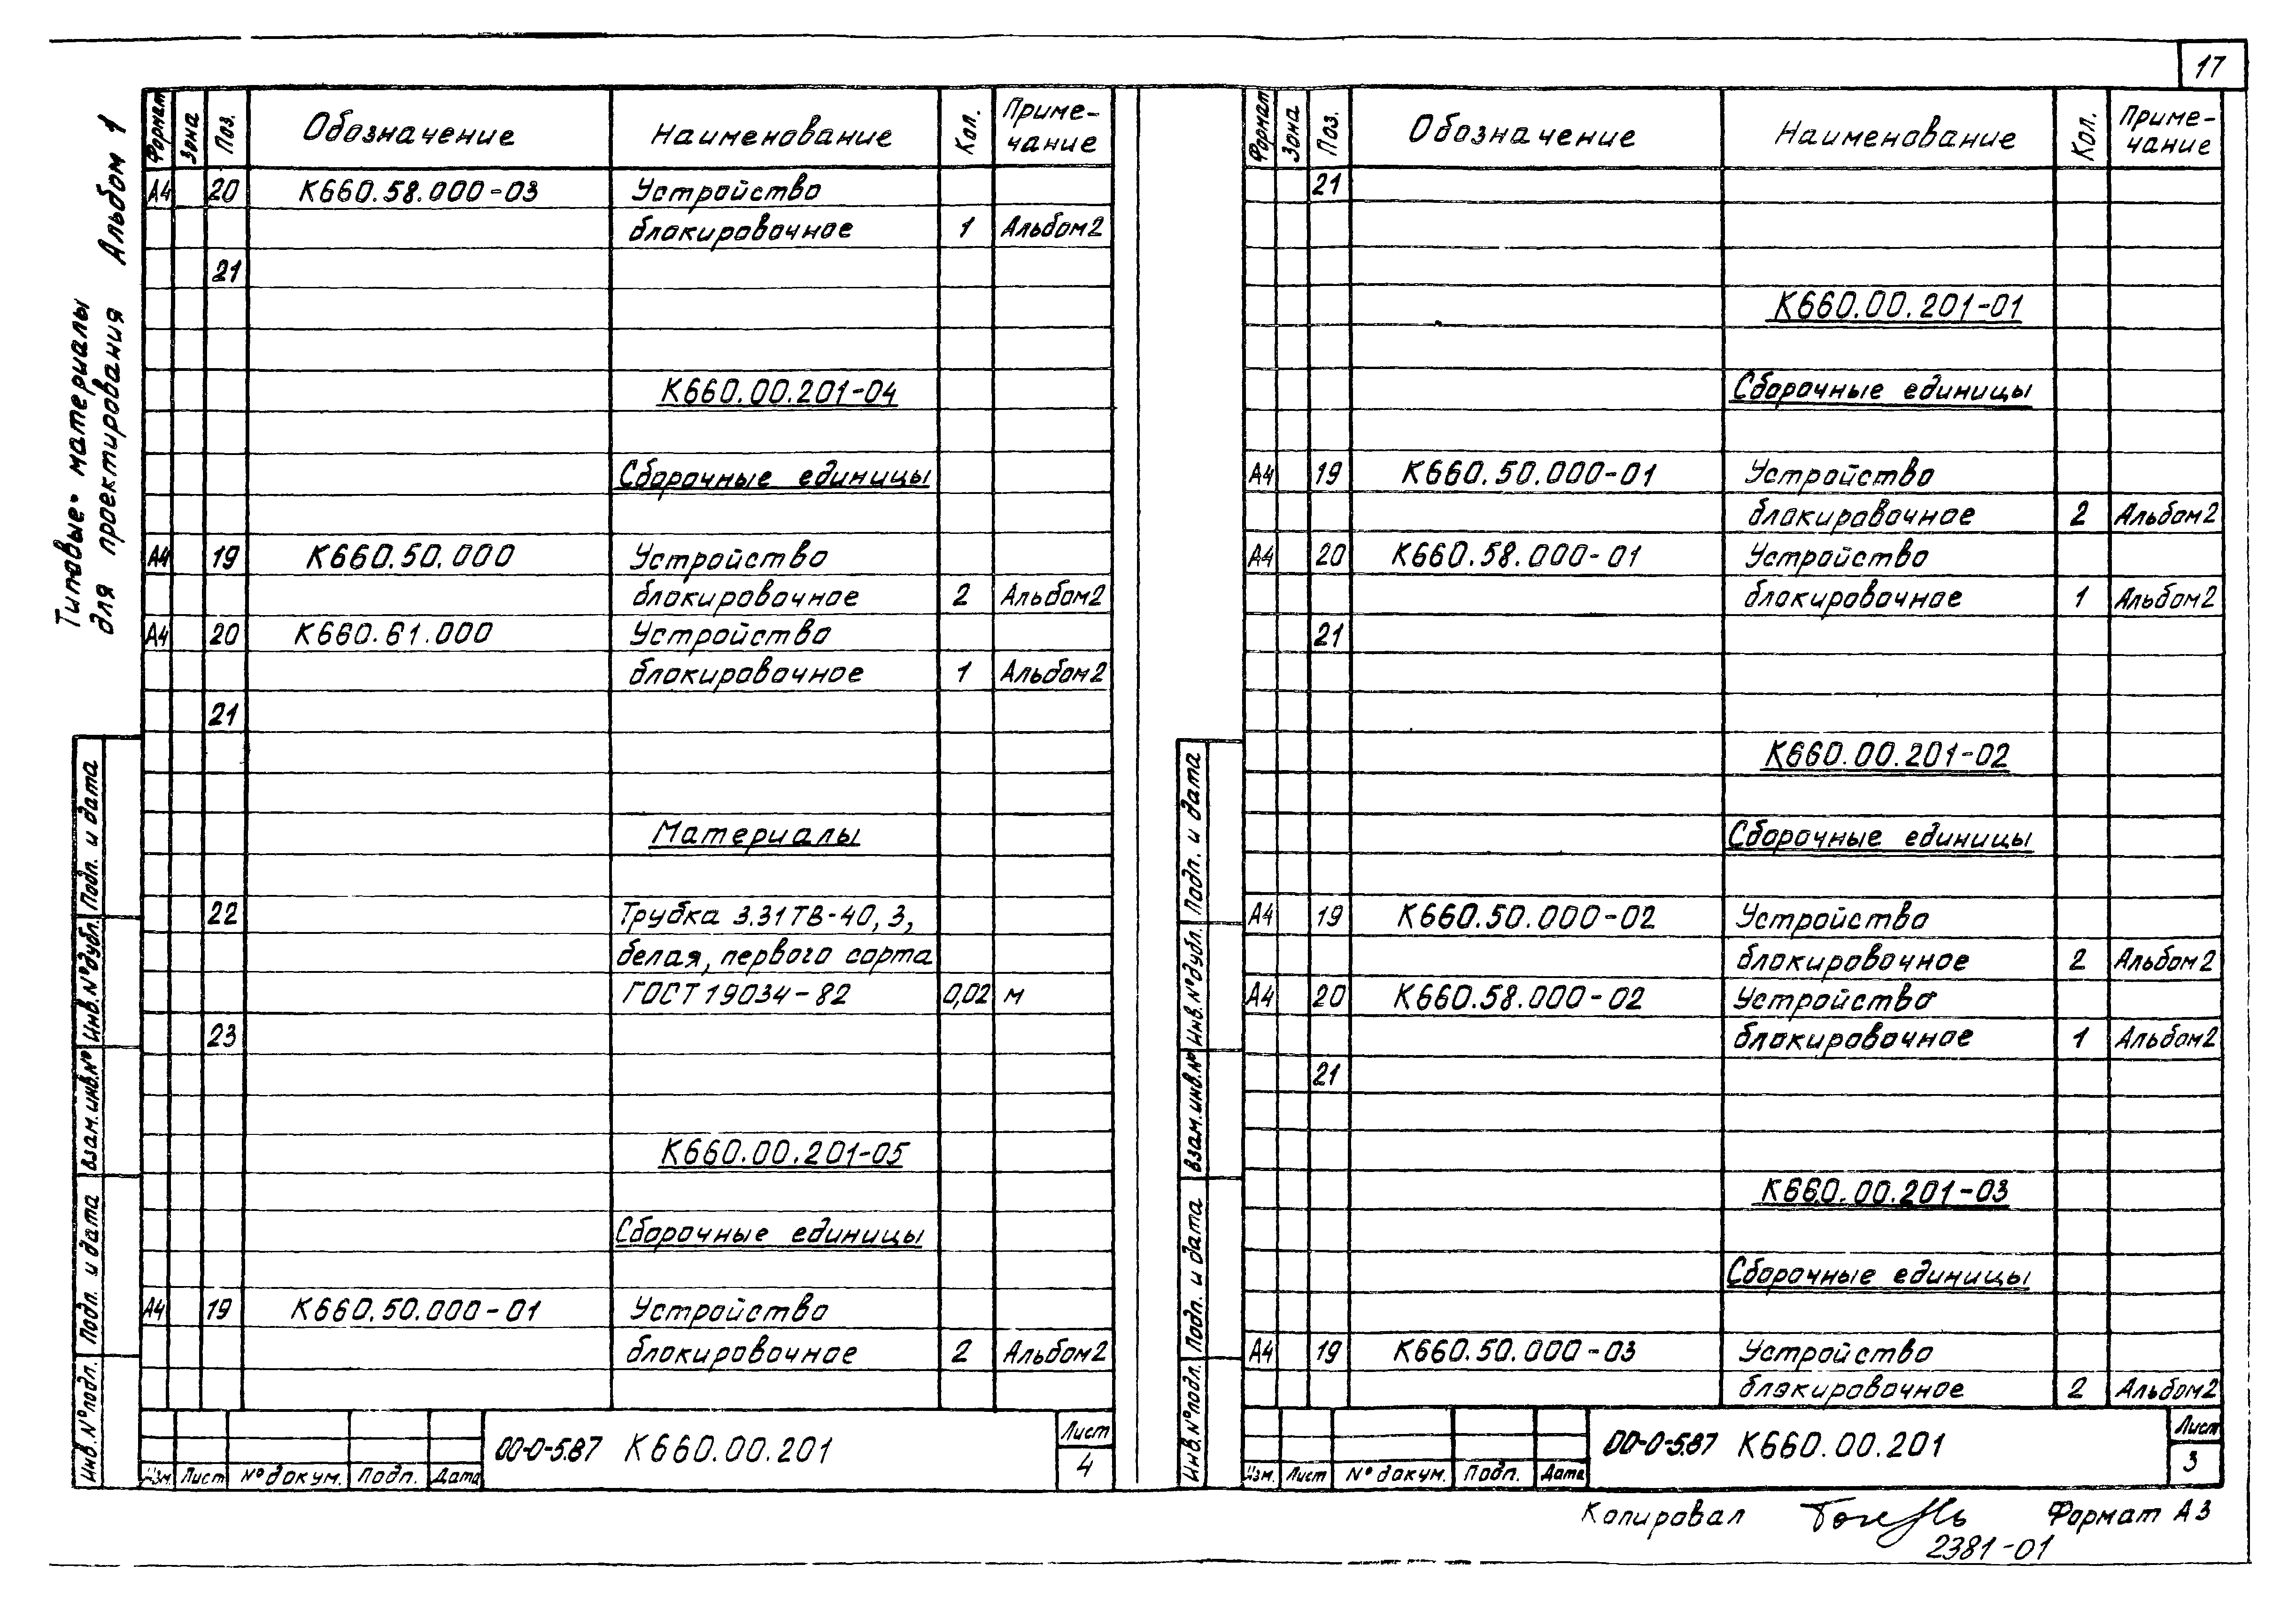 17
Типовые материалы
для проектирования Альбом 1
Формат Зона Поз. Обозначение Наименование Кол. Приме-
чание
А4 20 К660.58.000-03 Устройство
блокировочное 1 Альбом2
21
К660.00.201-04
Сборочные единицы
А4 19 К660.50.000 Устройство
блокировочное 2 Альбом2
А4 20 К660.61.000 Устройство
блокировочное 1 Альбом2
21
Материалы
22 Трубка 3.31ТВ-40, 3,
белая, первого сорта
ГОСТ 19034-82 0,02 м
23
К660.00.201-05
Сборочные единицы
А4 19 К660.50.000-01 Устройство
блокировочное 2 Альбом2
Инв.№подл. Подп. и дата Взам.инв.№ Инв.№дубл. Подп. и дата
Изм. Лист № докум. Подп. Дата
00-0-5.87 К660.00.201
Лист
4
Формат Зона Поз. Обозначение Наименование Кол. Приме-
чание
21
К660.00.201-01
Сборочные единицы
А4 19 К660.50.000-01 Устройство
блокировочное 2 Альбом2
А4 20 К660.58.000-01 Устройство
блокировочное 1 Альбом2
21
К660.00.201-02
Сборочные единицы
А4 19 К660.50.000-02 Устройство
блокировочное 2 Альбом2
А4 20 К660.58.000-02 Устройство
блокировочное 1 Альбом2
21
К660.00.201-03
Сборочные единицы
А4 19 К660.50.000-03 Устройство
блокировочное 2 Альбом2
Инв.№подл. Подп. и дата Взам.инв.№ Инв.№дубл. Подп. и дата
Изм. Лист № докум. Подп. Дата
00-0-5.87 К660.00.201
Лист
3
Копировал Формат А3
2381-01